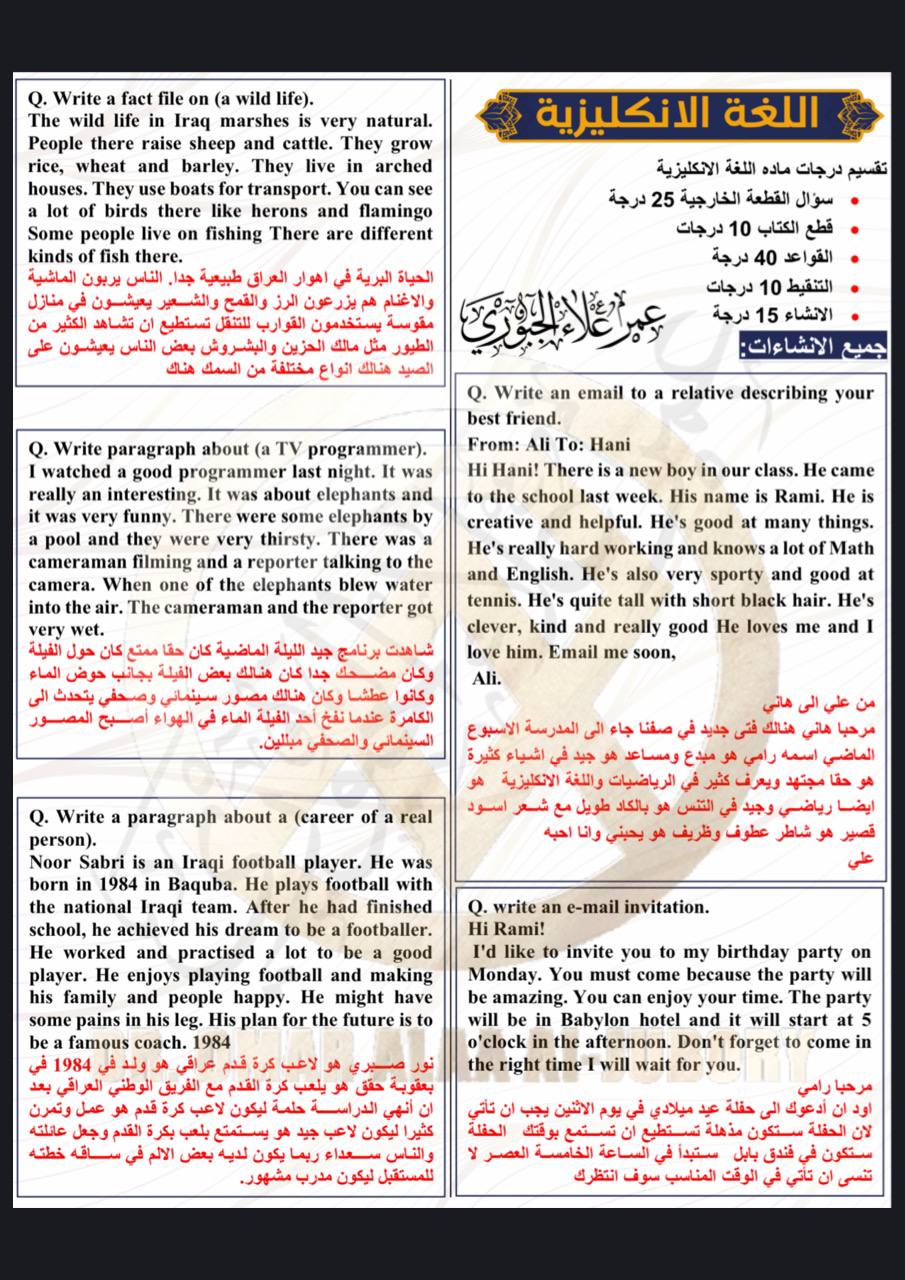 اللغة الانكليزية
تقسيم درجات ماده اللغة الانكليزية
• سؤال القطعة الخارجية 25 درجة
• قطع الكتاب 10 درجات
• القواعد 40 درجة
• التنقيط 10 درجات
• الانشاء 15 درجة
عمر علاء الجبوري
جميع الانشاءات:
Q. Write an email to a relative describing your
best friend.
From: Ali To: Hani
Hi Hani! There is a new boy in our class. He came
to the school last week. His name is Rami. He is
creative and helpful. He's good at many things.
He's really hard working and knows a lot of Math
and English. He's also very sporty and good at
tennis. He's quite tall with short black hair. He's
clever, kind and really good He loves me and I
love him. Email me soon,
Ali.
من علي الى هاني
مرحبا هاني هنالك فتى جديد في صفنا جاء الى المدرسة الاسبوع
الماضي اسمه رامي هو مبدع ومساعد هو جيد في اشياء كثيرة
هو حقا مجتهد ويعرف كثير في الرياضيات واللغة الانكليزية هو
ايضا رياضي وجيد في التنس هو بالكاد طويل مع شعر اسود
قصير هو شاطر عطوف وظريف هو يحبني وانا احبه
علي
Q. write an e-mail invitation.
Hi Rami!
I'd like to invite you to my birthday party on
Monday. You must come because the party will
be amazing. You can enjoy your time. The party
will be in Babylon hotel and it will start at 5
o'clock in the afternoon. Don't forget to come in
the right time I will wait for you.
مرحبا رامي
اود ان أدعوك الى حفلة عيد ميلادي في يوم الاثنين يجب ان تأتي
لان الحفلة ستكون مذهلة تستطيع ان تستمع بوقتك الحفلة
ستكون في فندق بابل ستبدأ في الساعة الخامسة العصر لا
تنسى ان تأتي في الوقت المناسب سوف انتظرك
Q. Write a fact file on (a wild life).
The wild life in Iraq marshes is very natural.
People there raise sheep and cattle. They grow
rice, wheat and barley. They live in arched
houses. They use boats for transport. You can see
a lot of birds there like herons and flamingo
Some people live on fishing There are different
kinds of fish there.
الحياة البرية في اهوار العراق طبيعية جدا. الناس يربون الماشية
والاغنام هم يزرعون الرز والقمح والشعير يعيشون في منازل
مقوسة يستخدمون القوارب للتنقل تستطيع ان تشاهد الكثير من
الطيور مثل مالك الحزين والبشروش بعض الناس يعيشون على
الصيد هنالك انواع مختلفة من السمك هناك
Q. Write paragraph about (a TV programmer).
I watched a good programmer last night. It was
really an interesting. It was about elephants and
it was very funny. There were some elephants by
a pool and they were very thirsty. There was a
cameraman filming and a reporter talking to the
camera. When one of the elephants blew water
into the air. The cameraman and the reporter got
very wet.
شاهدت برنامج جيد الليلة الماضية كان حقا ممتع كان حول الفيلة
وكان مضحك جدا كان هنالك بعض الفيلة بجانب حوض الماء
وكانوا عطشا وكان هنالك مصور سينمائي وصحفي يتحدث الى
الكامرة عندما نفخ أحد الفيلة الماء في الهواء أصبح المصور
السينمائي والصحفي مبللين.
Q. Write a paragraph about a (career of a real
person).
Noor Sabri is an Iraqi football player. He was
born in 1984 in Baquba. He plays football with
the national Iraqi team. After he had finished
school, he achieved his dream to be a footballer.
He worked and practised a lot to be a good
player. He enjoys playing football and making
his family and people happy. He might have
some pains in his leg. His plan for the future is to
be a famous coach. 1984
نور صبري هو لاعب كرة قدم عراقي هو ولد في 1984 في
بعقوبة حقق هو يلعب كرة القدم مع الفريق الوطني العراقي بعد
ان أنهي الدراسة حلمة ليكون لاعب كرة قدم هو عمل وتمرن
كثيرا ليكون لاعب جيد هو يستمتع بلعب بكرة القدم وجعل عائلته
والناس سعداء ربما يكون لديه بعض الالم في ساقه خطته
للمستقبل ليكون مدرب مشهور.